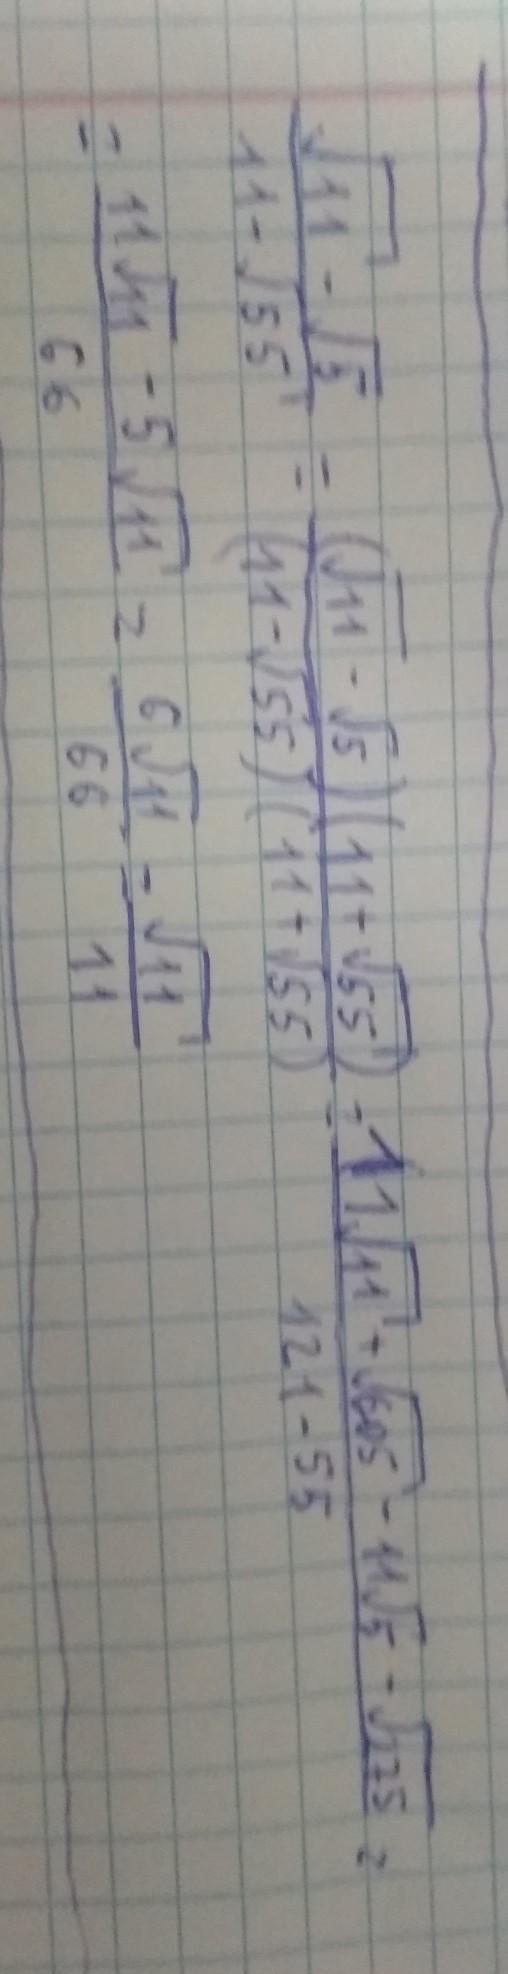 (√11 - √5)/(11 - √55) = ((√11 - √5)(11 + √55))/((11 - √55)(11 + √55)) = (11√11 + √605 - 11√5 - √275)/(121 - 55) =
= (11√11 - 5√11)/66 = 6√11/66 = √11/11